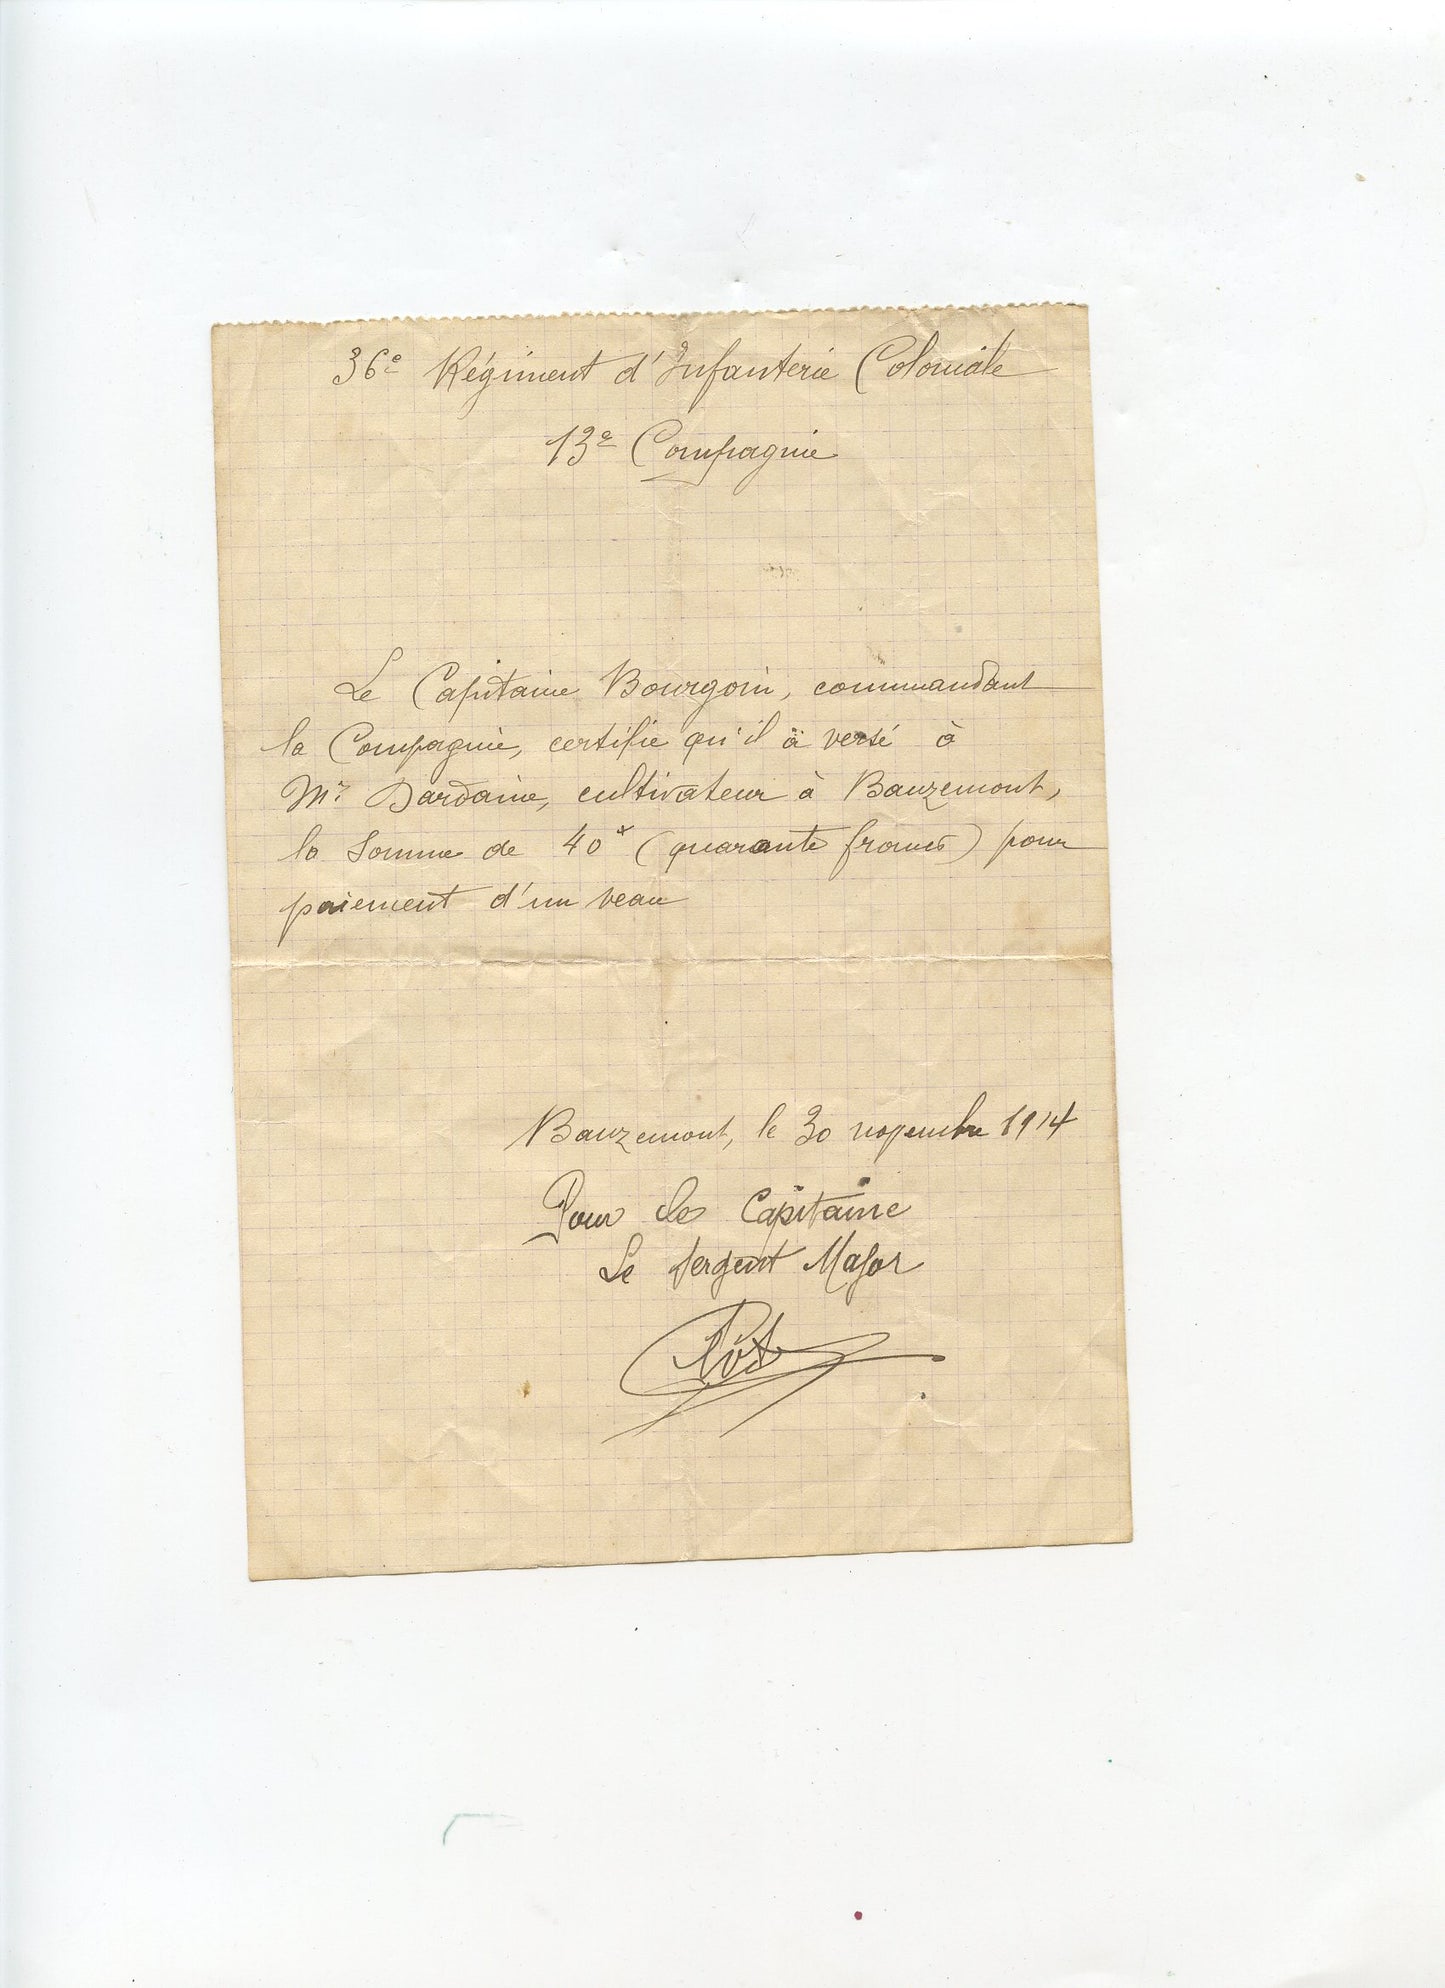 36e Régiment d'Infanterie Coloniale
13e Compagnie
Le Capitaine Bourgoin, commandant
la Compagnie, certifie qu'il a versé à
Mr Dardaine, cultivateur à Bauzemont,
la somme de 40f (quarante francs) pour
paiement d'un veau
Bauzemont, le 30 novembre 1914
Pour le Capitaine
Le Sergent Major